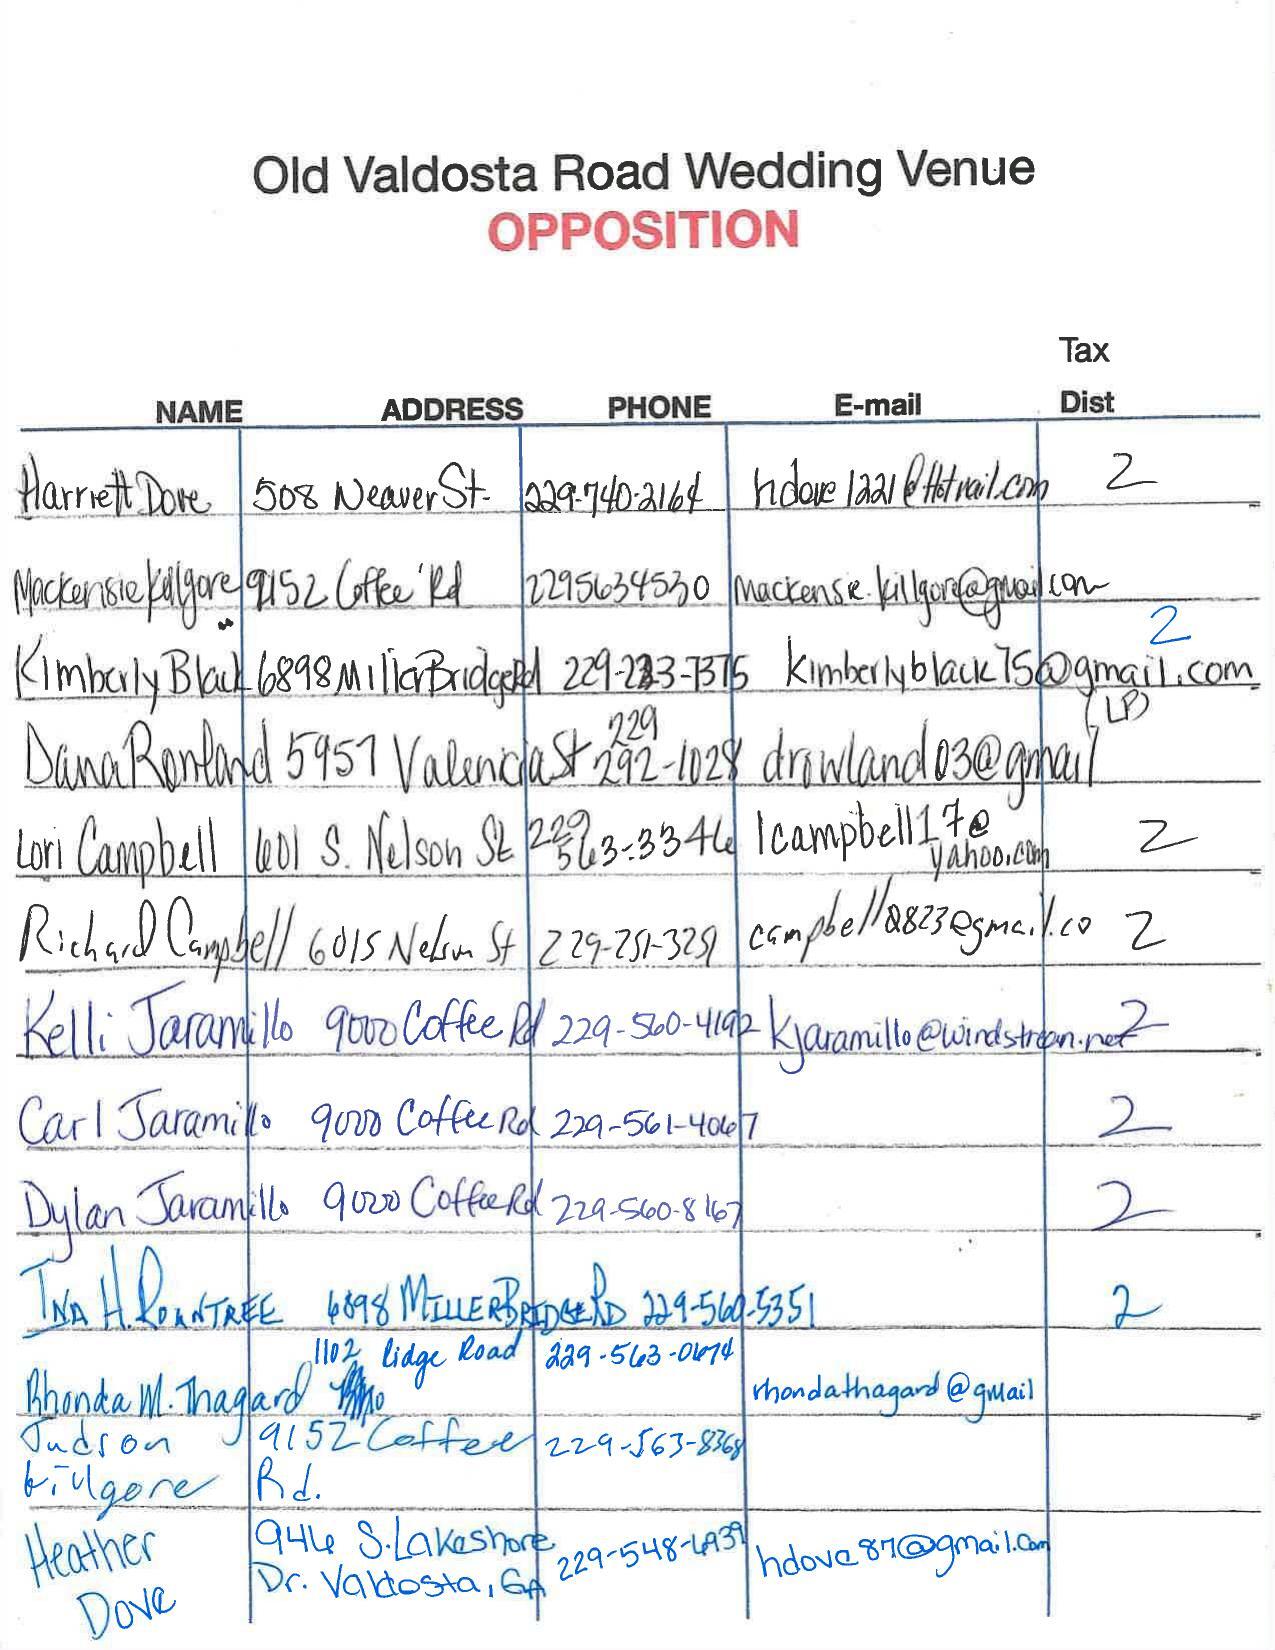 Old Valdosta Road Wedding Venue
OPPOSITION
Tax
NAME ADDRESS PHONE E-mail Dist
Harriett Dove 508 N Weaver St. 229-740-2164 hdove1221@Hotmail.com 2
Mackensie Killgore 9152 Coffee Rd 2295634530 mackensie.killgore@gmail.com
2
Kimberly Black 6898 Miller Bridge Rd 229-223-7375 kimberlyblack75@gmail.com
(LP)
229
Dana Rowland 5957 Valencia St 292-1028 drowland03@gmail
Lori Campbell 601 S. Nelson St 229 563-3346 lcampbell17@ 2
yahoo.com
Richard Campbell 601 S Nelson St 229-251-3251 campbell2823@gmail.co 2
Kelli Jaramillo 9000 Coffee Rd 229-560-4192 kjaramillo@windstream.net 2
Carl Jaramillo 9000 Coffee Rd 229-561-4067 2
Dylan Jaramillo 9000 Coffee Rd 229-560-8167 2
INA H. ROUNTREE 6898 MILLER BRIDGE RD 229-560-5351 2
1102 Ridge Road 229-563-0674
Rhonda M. Thagard rhondathagard@gmail
Judson 9152 Coffee 229-563-8368
Killgore Rd.
Heather 946 S. Lakeshore 229-548-6939 hdove87@gmail.com
Dove Dr. Valdosta, GA